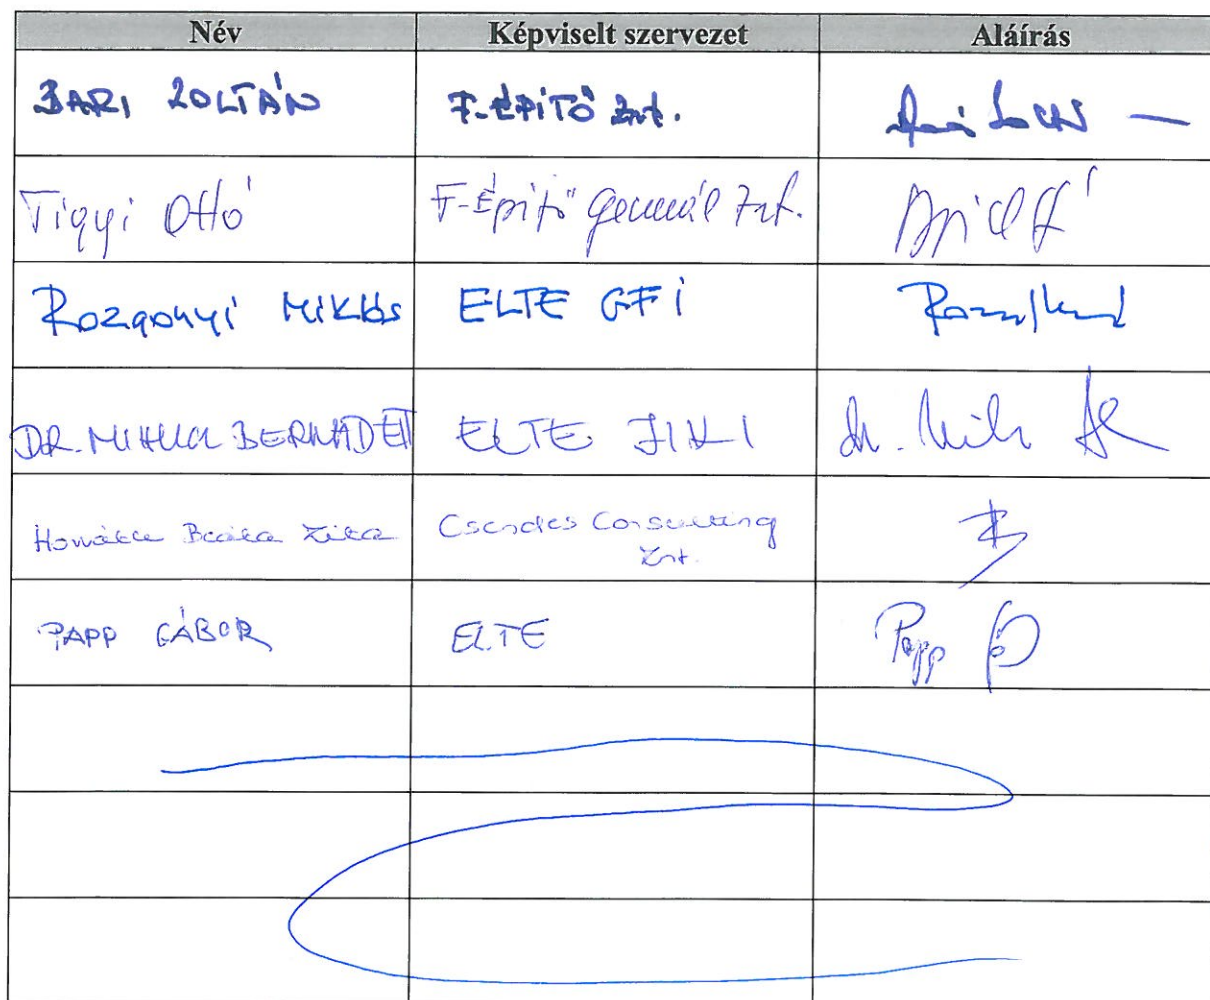 Név Képviselt szervezet Aláírás
BARI ZOLTÁN F-ÉPÍTŐ Zrt.
Tigyi Ottó F-Építő Generál Zrt.
Rozgonyi Miklós ELTE GFI
DR. MIHUCZ BERNADETT ELTE JIKI
Beáta Zita Csendes Consulting
Zrt.
PAPP GÁBOR ELTE Papp G